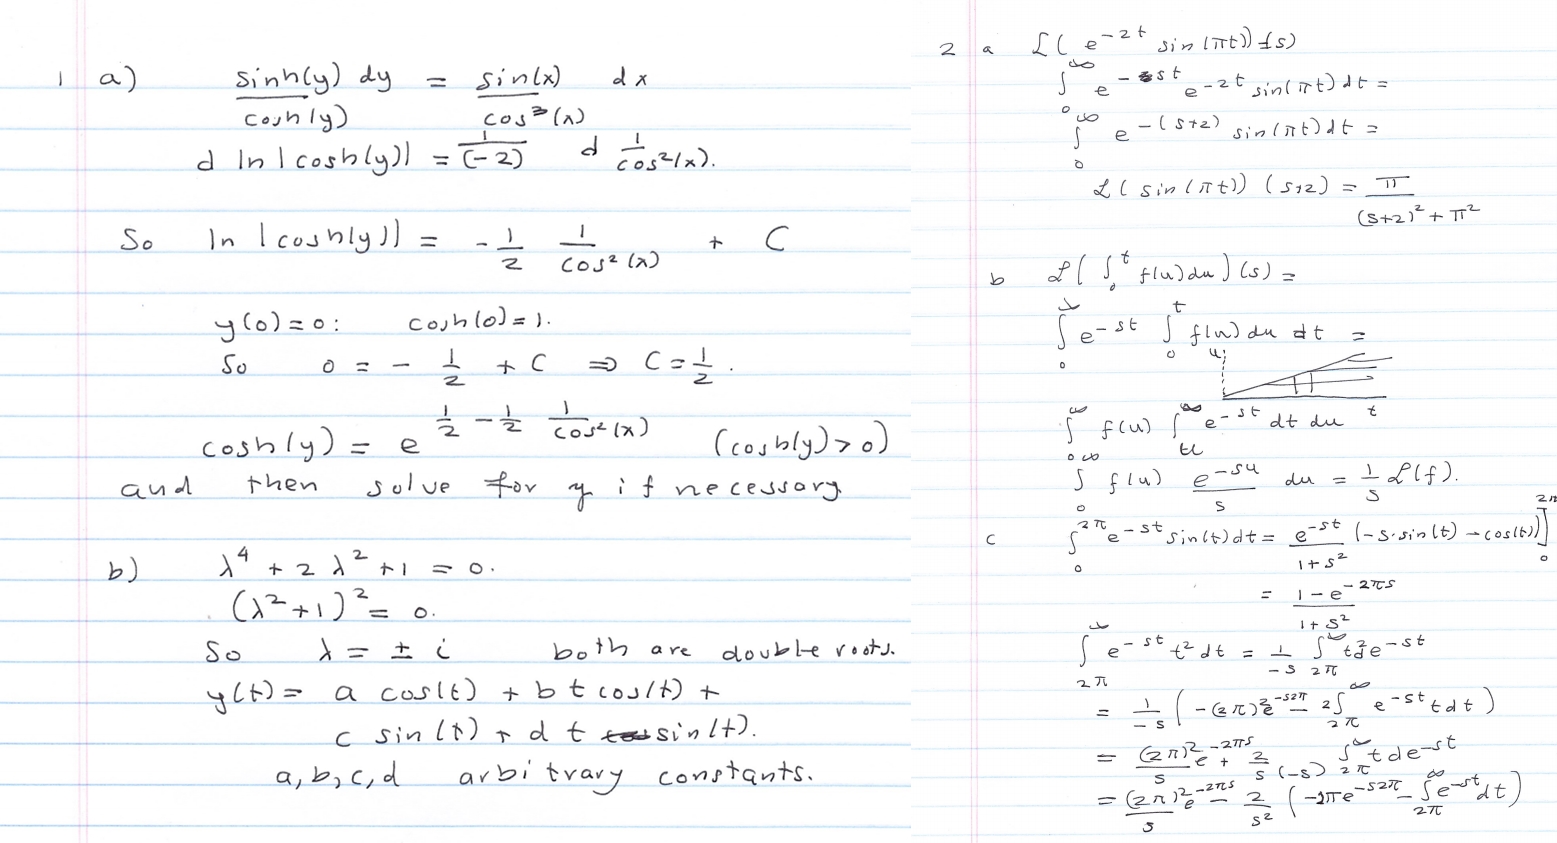 1 a) sinh(y)/cosh(y) dy = sin(x)/cos³(x) dx
d ln|cosh(y)| = 1/(-2) d 1/cos²(x).
So ln|cosh(y)| = -1/2 1/cos²(x) + C
y(0)=0: cosh(0)=1.
So 0 = - 1/2 + C ⇒ C = 1/2.
cosh(y) = e^(1/2 - 1/2 1/cos²(x)) (cosh(y)>0)
and then solve for y if necessary
b) λ⁴ + 2λ² + 1 = 0.
(λ²+1)² = 0.
So λ = ± i both are double roots.
y(t) = a cos(t) + b t cos(t) +
c sin(t) + d t sin(t).
a, b, c, d arbitrary constants.
2 a ℒ(e^(-2t) sin(πt))(s)
∫₀^∞ e^(-st) e^(-2t) sin(πt) dt =
∫₀^∞ e^(-(s+2)) sin(πt) dt =
ℒ(sin(πt))(s+2) = π/((s+2)² + π²)
b ℒ(∫₀^t f(u) du)(s) =
∫₀^∞ e^(-st) ∫₀^t f(u) du dt =
u
t
∫₀^∞ f(u) ∫_u^∞ e^(-st) dt du
∫₀^∞ f(u) e^(-su)/s du = 1/s ℒ(f).
c ∫₀^(2π) e^(-st) sin(t) dt = e^(-st)/(1+s²) (-s·sin(t) - cos(t))]₀^(2π)
= (1 - e^(-2πs))/(1+s²)
∫_(2π)^∞ e^(-st) t² dt = 1/(-s) ∫_(2π)^∞ t² d e^(-st)
= 1/(-s) (-(2π)² e^(-s2π) - 2∫_(2π)^∞ e^(-st) t dt)
= (2π)²/s e^(-2πs) + 2/(s(-s)) ∫_(2π)^∞ t d e^(-st)
= (2π)²/s e^(-2πs) - 2/s² (-2π e^(-s2π) - ∫_(2π)^∞ e^(-st) dt)